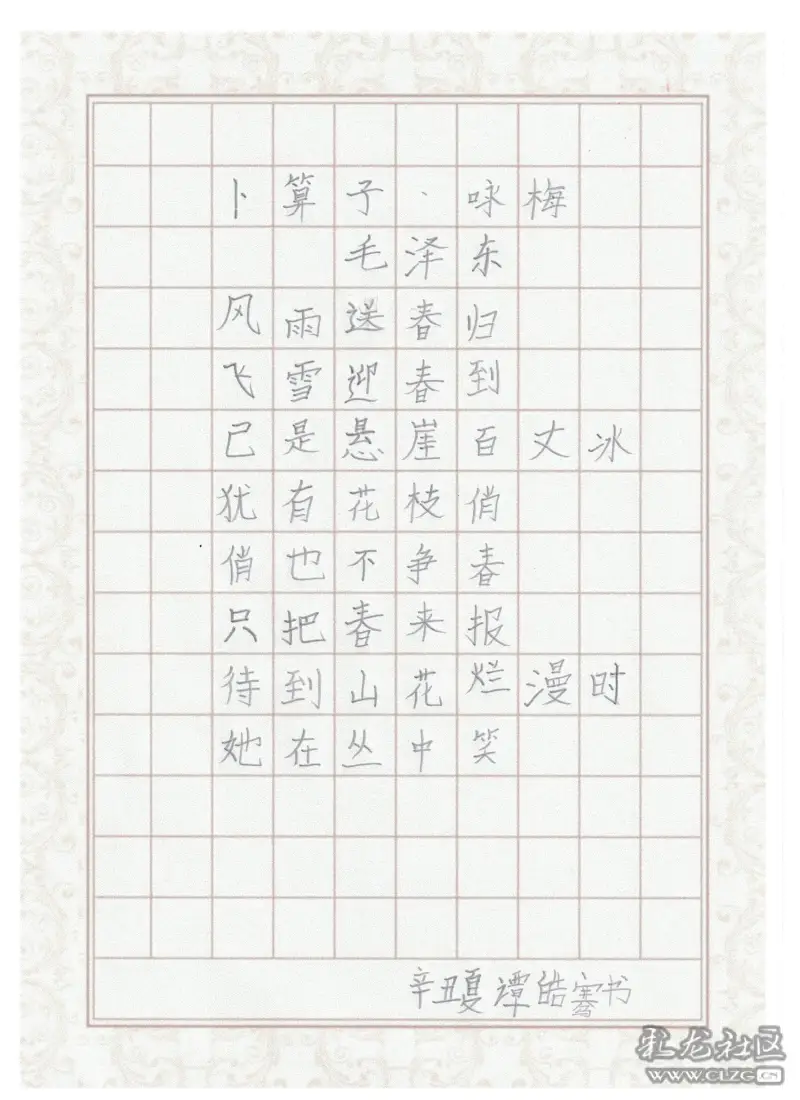 卜算子·咏梅
毛泽东
风雨送春归
飞雪迎春到
已是悬崖百丈冰
犹有花枝俏
俏也不争春
只把春来报
待到山花烂漫时
她在丛中笑
辛丑夏 谭皓骞书
化龙社区
WWW.CLZG.CN